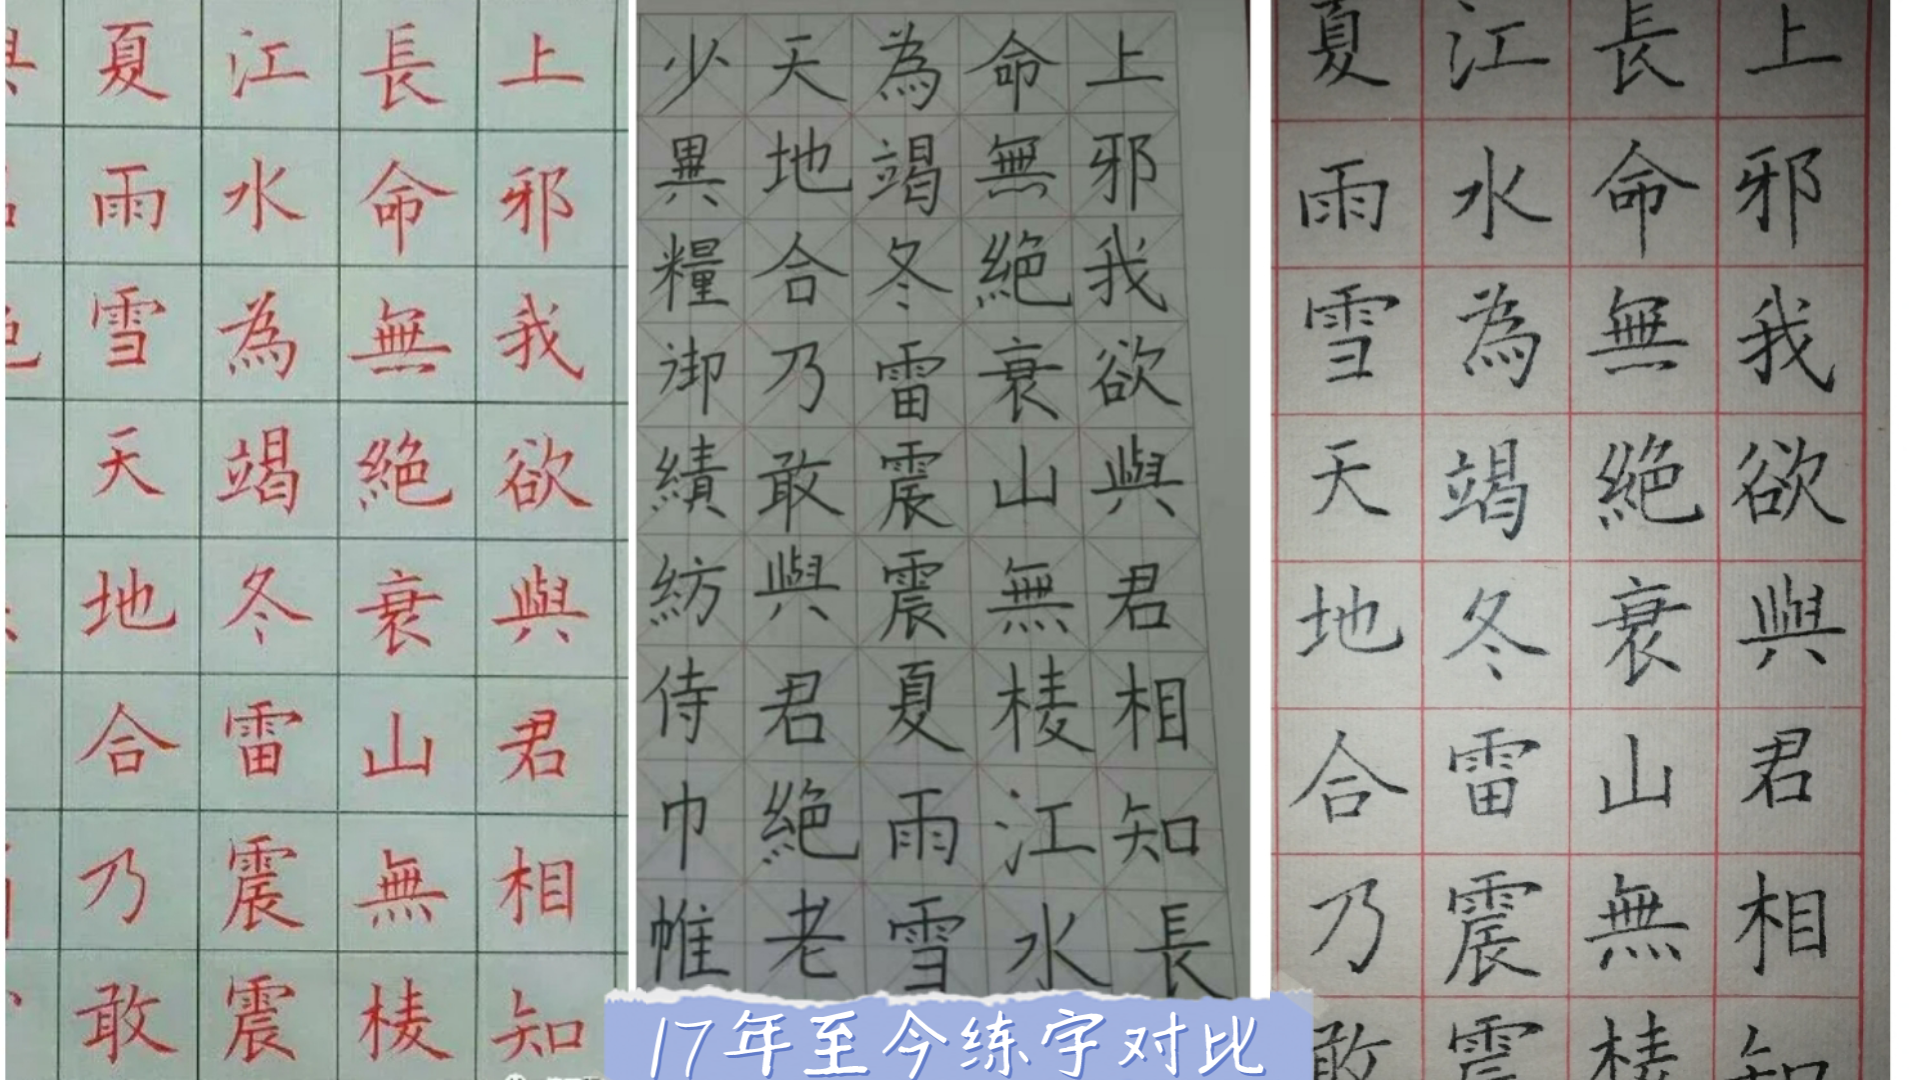 上邪我欲與君相知
長命無絶衰山無棱
江水為竭冬雷震震
夏雨雪天地合乃敢
上邪我欲與君相知長
命無絶衰山無棱江水
為竭冬雷震震夏雨雪
天地合乃敢與君絶老
少異糧御績紡侍巾帷
上邪我欲與君相知
長命無絶衰山無棱
江水為竭冬雷震震
夏雨雪天地合乃敢
17年至今练字对比